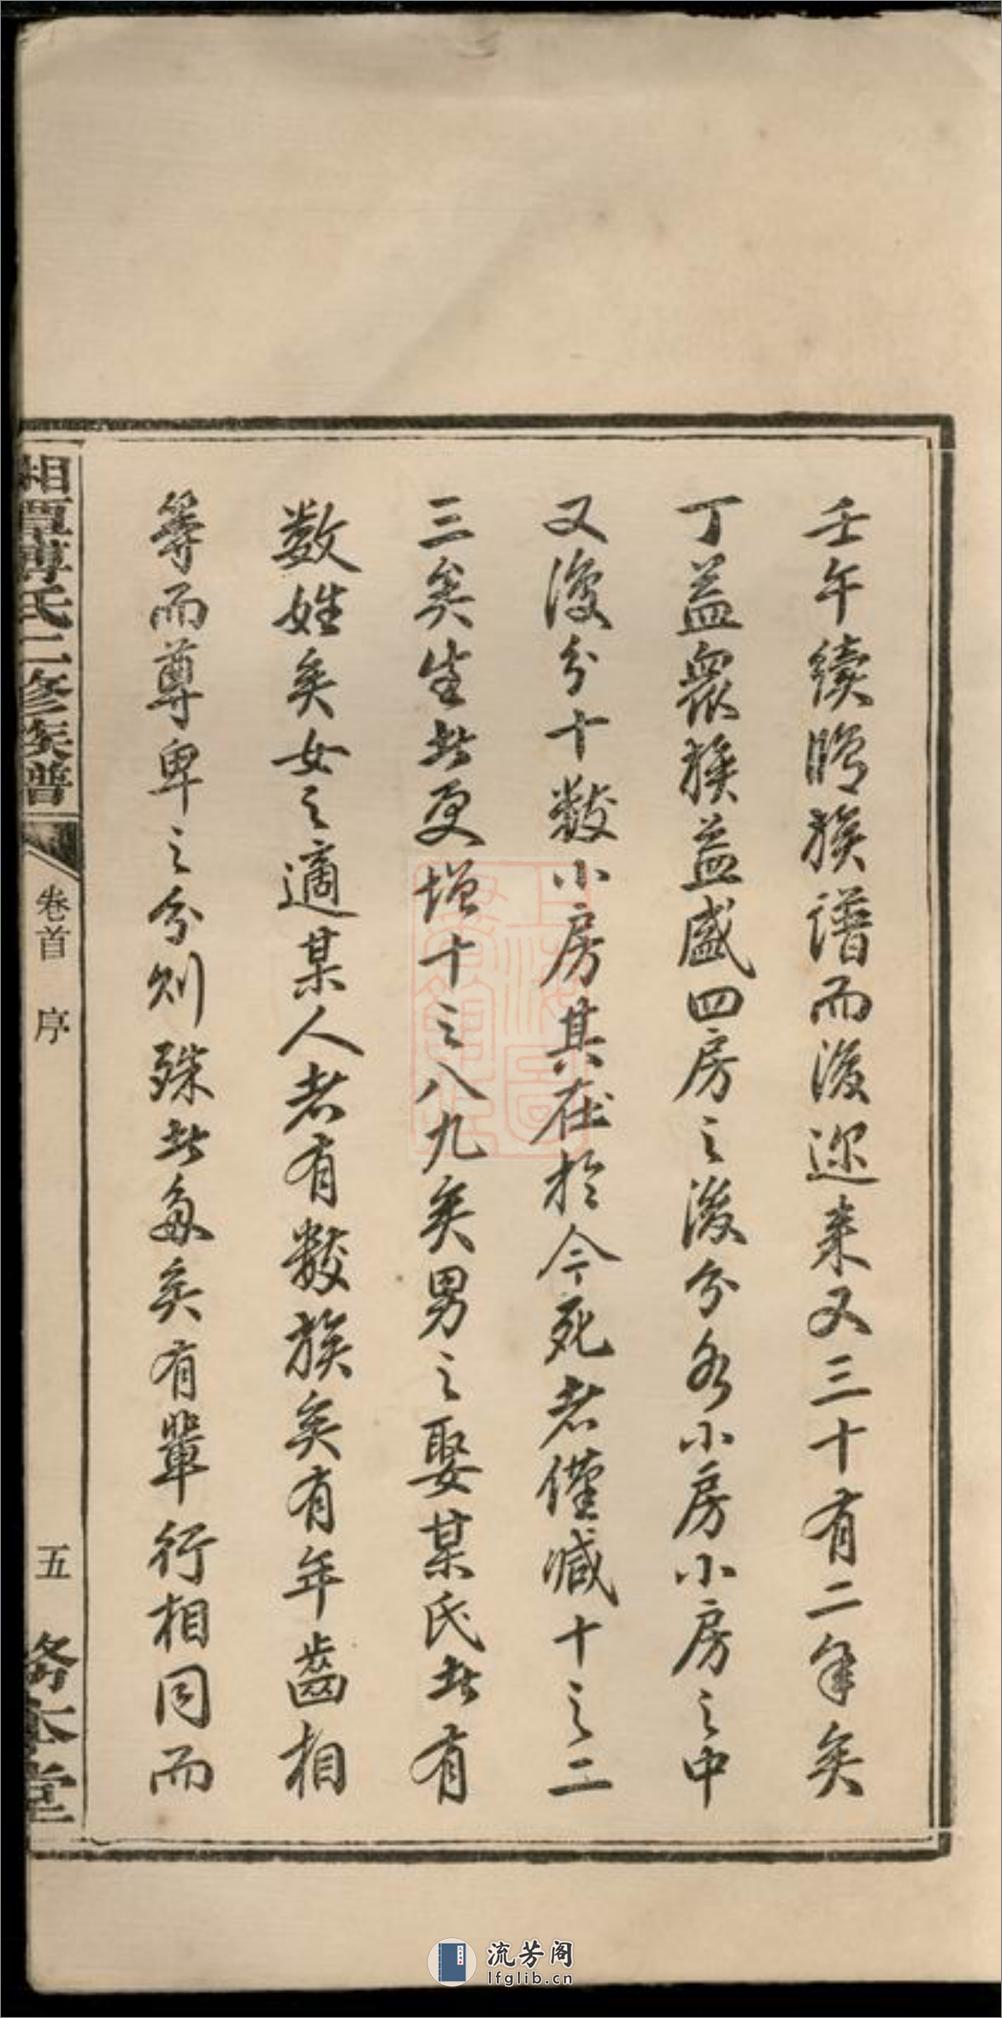 壬午續修族譜而後迩来又三十有二年矣
丁益衆族益盛四房之後分各小房小房之中
又後分十數小房其在於今死者僅減十之二
三矣生者更增十之八九矣男之娶某氏者有
数姓矣女之適某人者有數族矣有年齒相
等而尊卑之分则殊者多矣有輩行相同而
湘潭傅氏二修族譜
卷首 序
五
務本堂
流芳阁
lfglib.cn